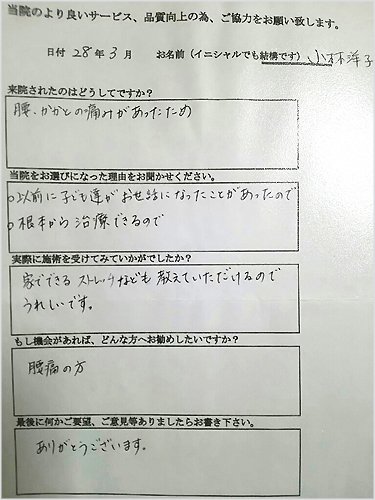 当院のより良いサービス、品質向上の為、ご協力をお願い致します。
日付 28年 3月 お名前（イニシャルでも結構です）小林洋子
来院されたのはどうしてですか？
腰、かかとの痛みがあったため
当院をお選びになった理由をお聞かせください。
○以前に子ども達がお世話になったことがあったので
○根本から治療できるので
実際に施術を受けてみていかがでしたか？
家でできるストレッチなども教えていただけるので
うれしいです。
もし機会があれば、どんな方へお勧めしたいですか？
腰痛の方
最後に何かご要望、ご意見等ありましたらお書き下さい。
ありがとうございます。